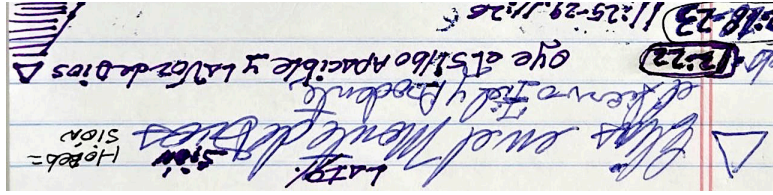 La Igl.
Elías en el Monte de Dios Horeb=
Sión SIÓN
el siervo Fiel y Prudente
12:22 Oye el Silbo Apacible y La Voz de Dios
18-23 11:25-29. 11:26